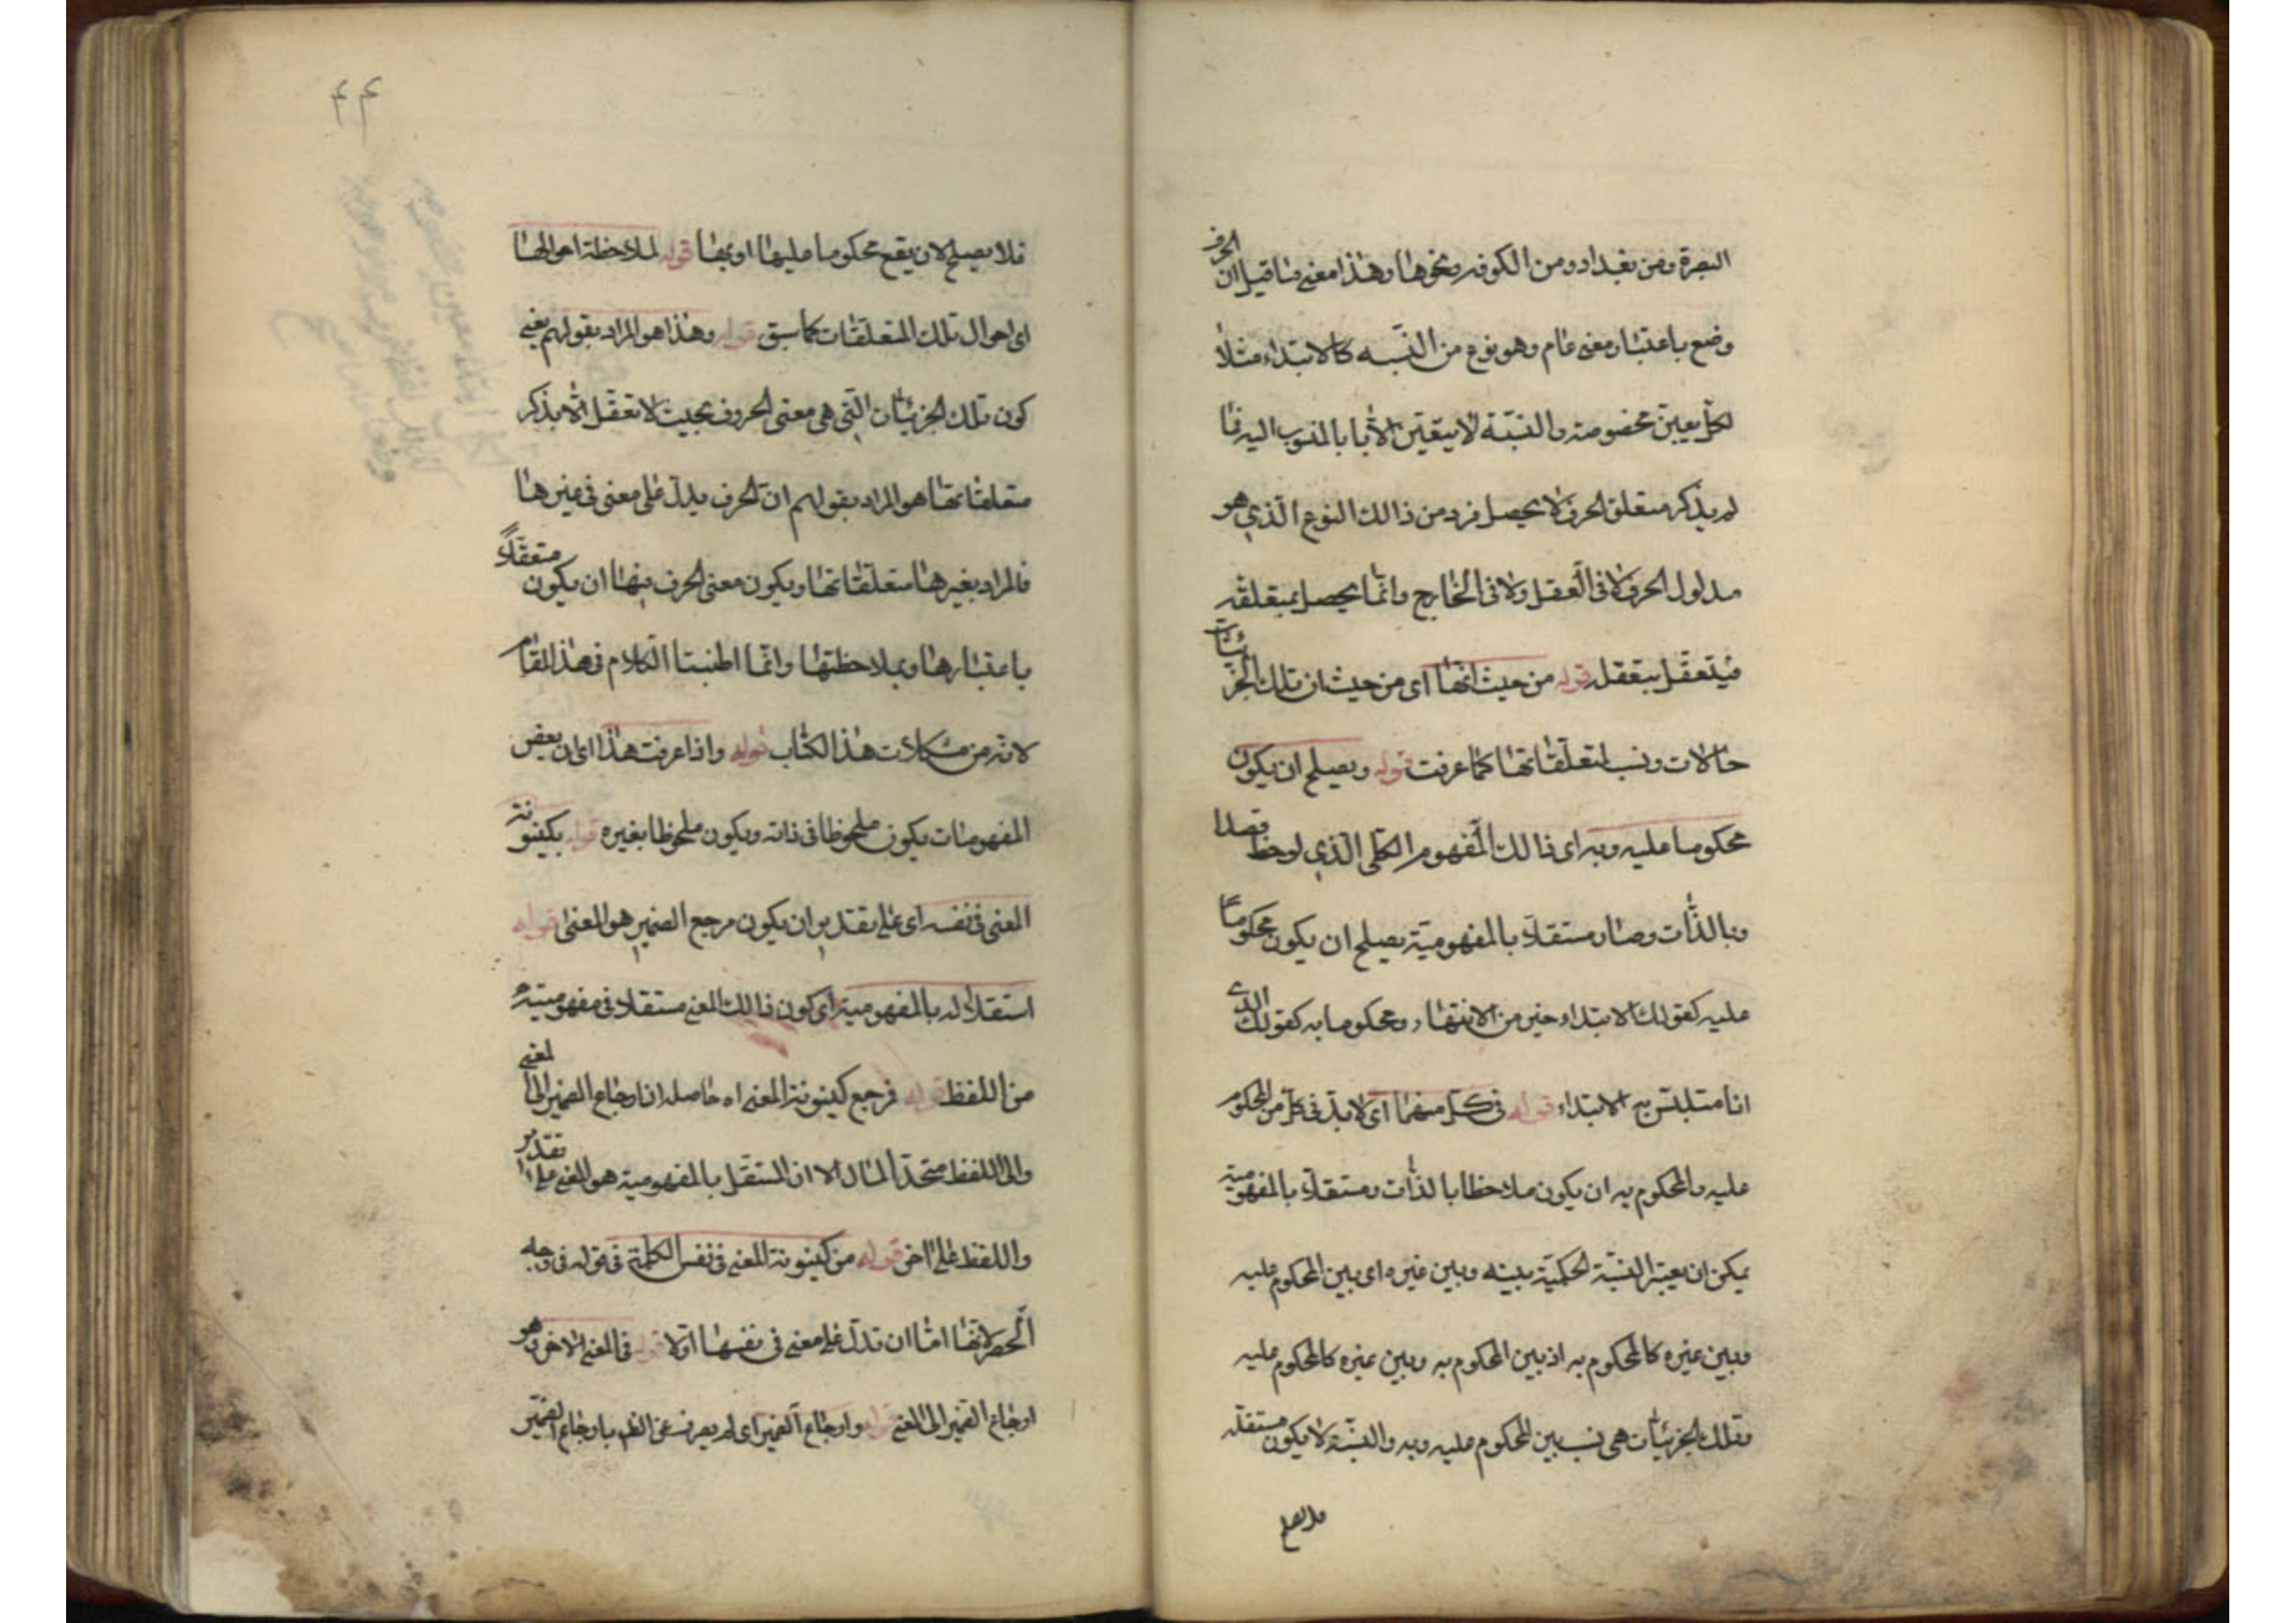 البصرة ومن بغداد ومن الكوفه ونحوها وهذا معنى ما قيل ان الحرف
وضع باعتبار معنى عام وهو نوع من النسبه كالابتداء مثلا
لكل معين مخصوصة والنسبة لا يتعين الا بالمنسوب اليه فما
لم يذكر متعلق الحرف لا يحصل فرد من ذالك النوع الذي هو
مدلول الحرف لا فى العقل ولا فى الخارج وانما يحصل بمتعلقه
فيتعقل بتعقله قوله من حيث انها اى من حيث ان تلك الجزئيات
حالات ونسب لمتعلقاتها كما عرفت قوله ويصلح ان يكون
محكوما عليه وبه اى ذالك المفهوم الكلى الذي لوحظ قصدا
وبالذات وصار مستقلا بالمفهومية يصلح ان يكون محكوما
عليه كقولك الابتداء خير من الانتهاء ومحكوما به كقولك الذى
انا متلبس به الابتداء قوله فى كل منهما اى لا بد فى كل من المحكوم
عليه والمحكوم به ان يكون ملاحظا بالذات ومستقلا بالمفهومية
يمكن ان يعتبر النسبة الحكمية بينه وبين غيره اى بين المحكوم عليه
وبين غيره كالمحكوم به اذ بين المحكوم به وبين غيره كالمحكوم عليه
وتلك الجزئيات هى نسب بين المحكوم عليه وبه والنسبة لا يكون مستقلة
فلا يصلح
۴۴
فلا يصلح لان يقع محكوما عليها او بها قوله لملاحظة احوالها
اى احوال تلك المتعلقات كما سبق قوله وهذا هو المراد بقولهم يعنى
كون تلك الجزئيات التى هى معنى الحروف بحيث لا تعقل الا بذكر
متعلقاتها هو المراد بقولهم ان الحرف يدل على معنى فى غيرها
فالمراد بغيرها متعلقاتها ويكون معنى الحرف فيها ان يكون متعقلا
باعتبارها وبملاحظتها وانما اطنبنا الكلام فى هذا المقام
لانه من مشكلات هذا الكتاب قوله واذا عرفت هذا اى ان بعض
المفهومات يكون ملحوظا فى ذاته ويكون ملحوظا بغيره قوله بكينونة
المعنى فى نفسه اى على تقدير ان يكون مرجع الضمير هو المعنى قوله
استقلاله بالمفهومية اى كون ذالك المعنى مستقلا فى مفهوميته
من اللفظ قوله فرجع كينونة المعنى اه حاصله ان ارجاع الضمير الى المعنى
والى اللفظ متحد المال الا ان المستقل بالمفهومية هو المعنى على تقدير
واللفظ على اخر قوله من كينونة المعنى فى نفس الكلمة فى قوله فى وجه
الحصر لانها اما ان تدل على معنى فى نفسها اولا قوله فالمعنى الاخر هو
ارجاع الضمير الى المعنى قوله وارجاع الضمير اى لم يصرف عن الظ بارجاع الضمير